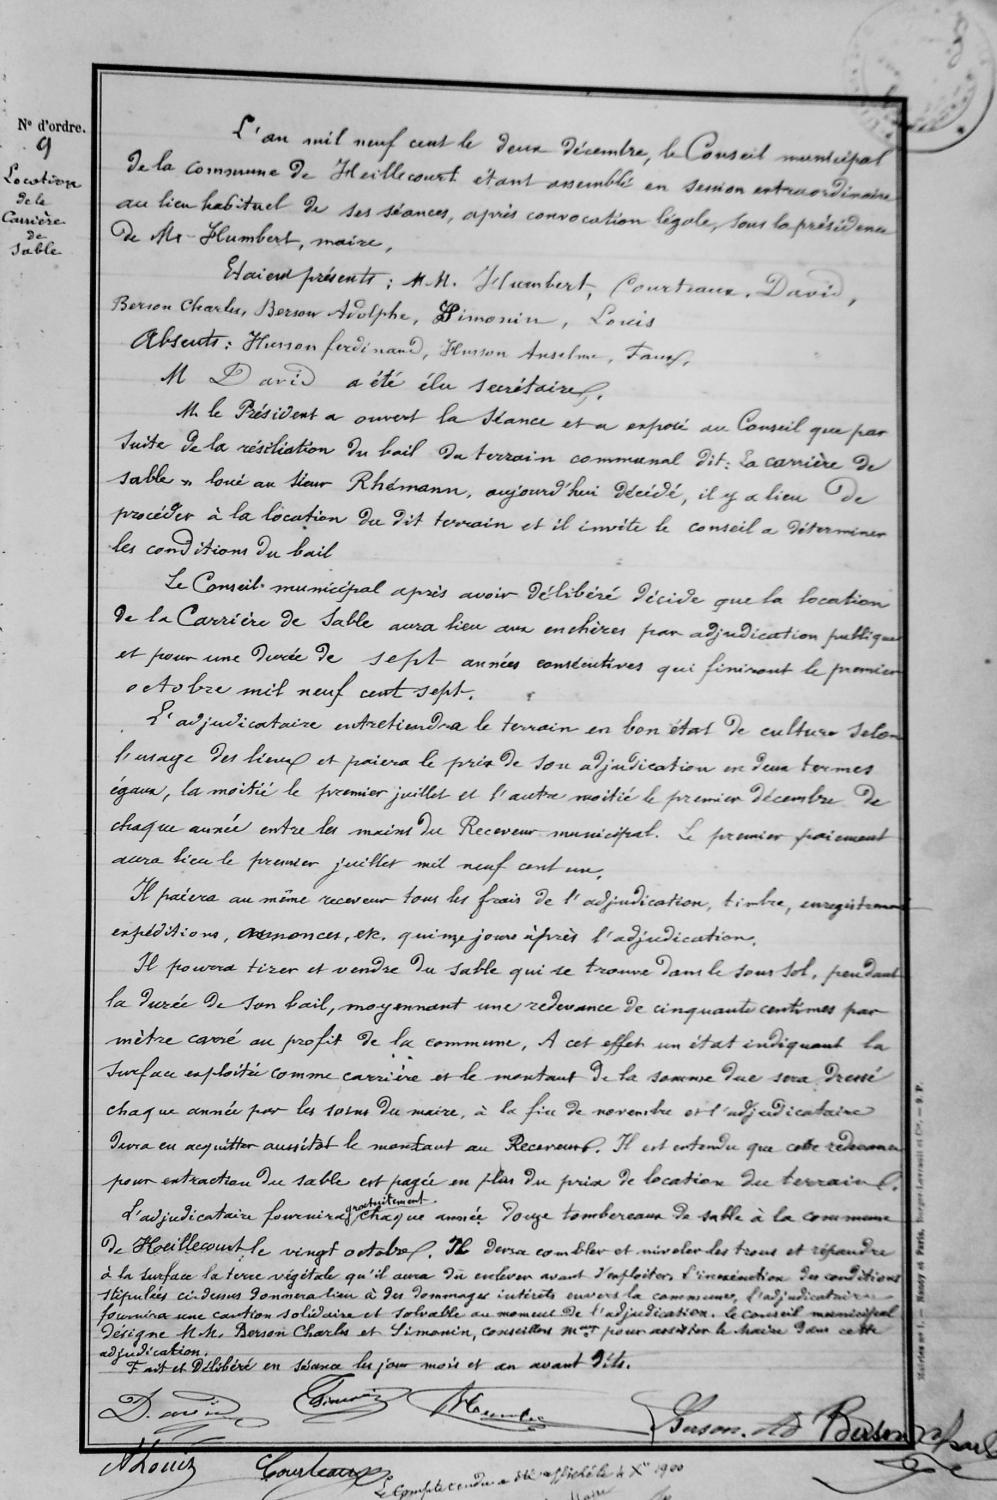 Nº d'ordre.
9
Location
de la
Carrière
de
Sable
L'an mil neuf cent le deux décembre, le Conseil municipal
de la commune de Heillecourt étant assemblé en session extraordinaire
au lieu habituel de ses séances, après convocation légale, sous la présidence
de Mr Humbert, maire,
Etaient présents : M.M. Humbert, Courteaux, David,
Berson Charles, Berson Adolphe, Simonin, Louis
Absents : Husson ferdinand, Husson Anselme, Faux,
M David a été élu secrétaire.
M. le Président a ouvert la séance et a exposé au Conseil que par
suite de la résiliation du bail du terrain communal dit : La carrière de
sable » loué au sieur Rhémann, aujourd'hui décédé, il y a lieu de
procéder à la location du dit terrain et il invite le conseil a déterminer
les conditions du bail
Le Conseil municipal après avoir délibéré décide que la location
de la Carrière de Sable aura lieu aux enchères par adjudication publique
et pour une durée de sept années consécutives qui finiront le premier
octobre mil neuf cent sept.
L'adjudicataire entretiendra le terrain en bon état de culture selon
l'usage des lieux et paiera le prix de son adjudication en deux termes
égaux, la moitié le premier juillet et l'autre moitié le premier décembre de
chaque année entre les mains du Receveur municipal. Le premier paiement
aura lieu le premier juillet mil neuf cent un.
Il paiera au même receveur tous les frais de l'adjudication, timbre, enregistrement
expéditions, annonces, etc. quinze jours après l'adjudication.
Il pourra tirer et vendre du sable qui se trouve dans le sous sol, pendant
la durée de son bail, moyennant une redevance de cinquante centimes par
mètre carré au profit de la commune, A cet effet un état indiquant la
surface exploitée comme carrière et le montant de la somme due sera dressé
chaque année par les soins du maire, à la fin de novembre et l'adjudicataire
devra en acquitter aussitôt le montant au Receveur. Il est entendu que cette redevance
pour extraction du sable est payée en plus du prix de location du terrain.
L'adjudicataire fournira gratuitement chaque année douze tombereaux de sable à la commune
de Heillecourt le vingt octobre. Il devra combler et niveler les trous et répandre
à la surface la terre végétale qu'il aura dû enlever avant d'exploiter. L'inexécution des conditions
stipulées ci-dessus donnera lieu à des dommages intérêts envers la commune, l'adjudicataire
fournira une caution solidaire et solvable au moment de l'adjudication. Le conseil municipal
désigne M.M. Berson Charles et Simonin, conseillers maux pour assister le Maire dans cette
adjudication.
Fait et Délibéré en séance les jour mois et an avant dits.
D. avid Simonin Humbert Berson. Ad Berson Charles
A Louis Courteaux
Le Compte rendu a été affiché le 4 Xre 1900
Maire